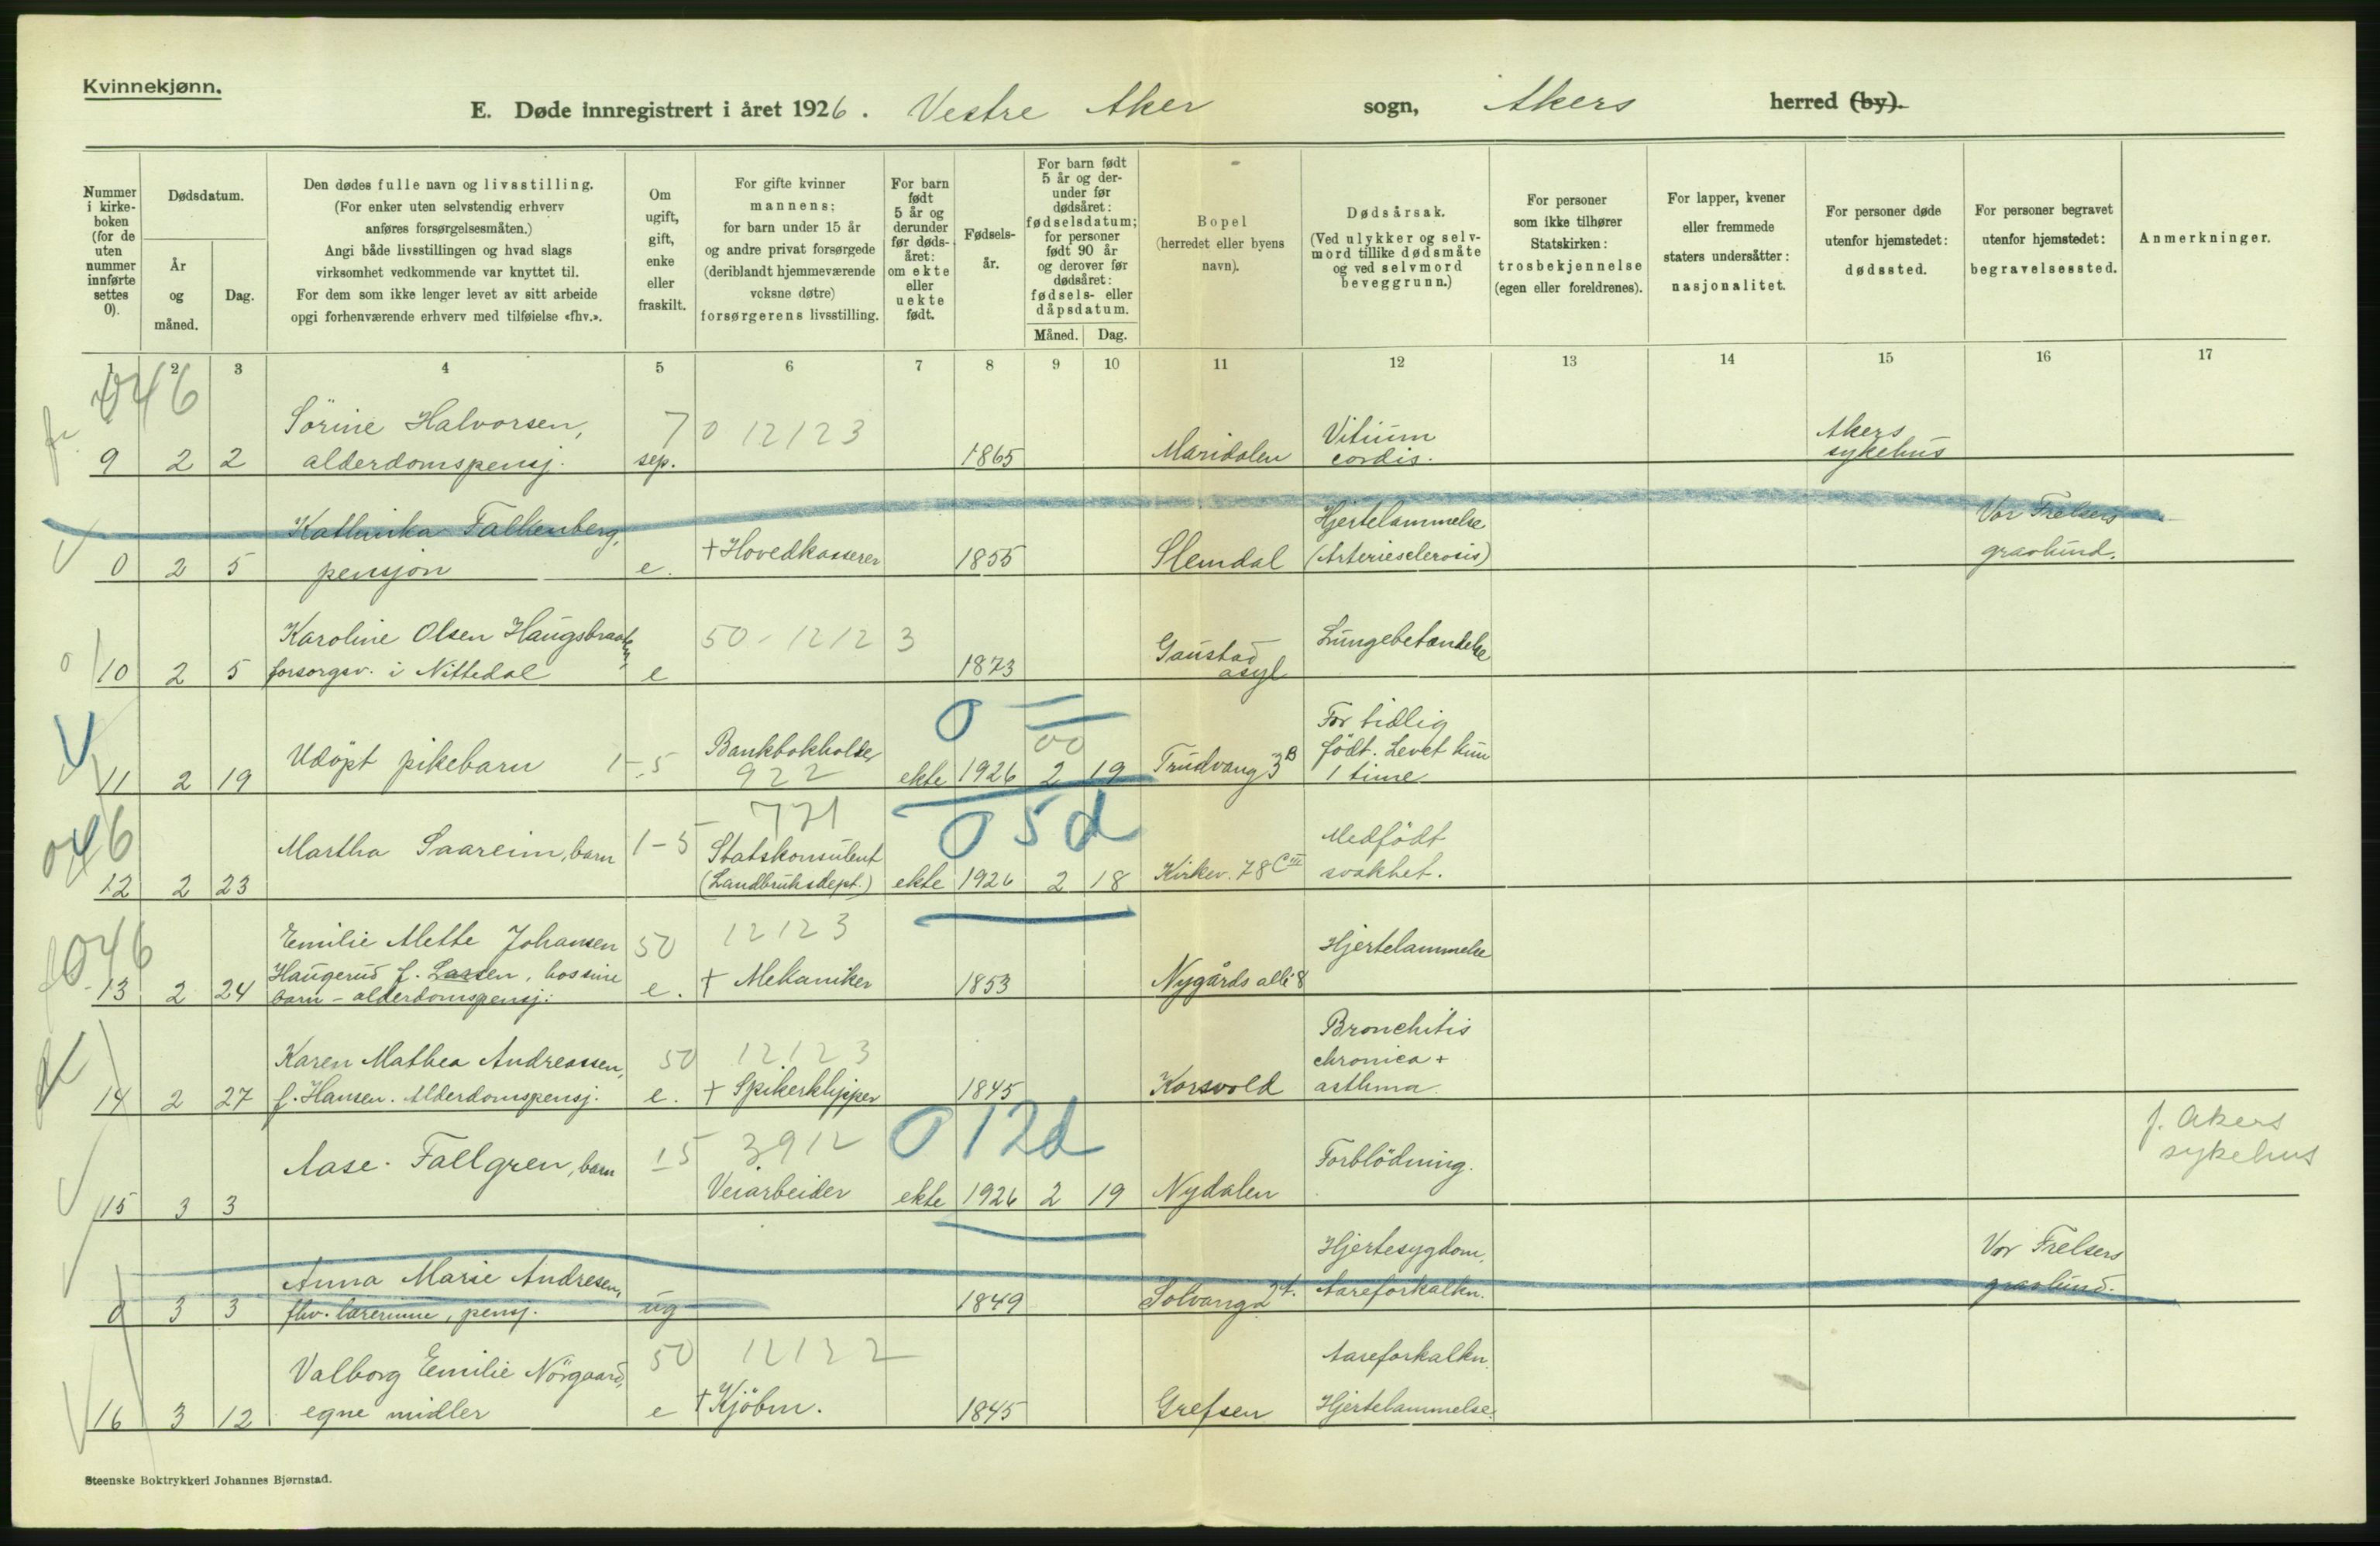 Kvinnekjønn.
E. Døde innregistrert i året 1926. Vestre Aker sogn, Akers herred (by).
Nummer i kirkeboken (for de uten nummer innførte settes 0).
Dødsdatum.
År og måned.
Dag.
Den dødes fulle navn og livsstilling.
(For enker uten selvstendig erhverv
anføres forsørgelsesmåten.)
Angi både livsstillingen og hvad slags
virksomhet vedkommende var knyttet til.
For dem som ikke lenger levet av sitt arbeide
opgi forhenværende erhverv med tilføielse «fhv.».
Om ugift, gift, enke eller fraskilt.
For gifte kvinner
mannens;
for barn under 15 år
og andre privat forsørgede
(deriblandt hjemmeværende
voksne døtre)
forsørgerens livsstilling.
For barn født 5 år og derunder før dødsåret: om ekte eller uekte født.
Fødselsår.
For barn født 5 år og derunder før dødsåret: fødselsdatum; for personer født 90 år og derover før dødsåret: fødsels- eller dåpsdatum.
Måned. Dag.
Bopel
(herredet eller byens
navn).
Dødsårsak.
(Ved ulykker og selvmord tillike dødsmåte
og ved selvmord
beveggrunn.)
For personer
som ikke tilhører
Statskirken:
trosbekjennelse
(egen eller foreldrenes).
For lapper, kvener
eller fremmede
staters undersåtter:
nasjonalitet.
For personer døde
utenfor hjemstedet:
dødssted.
For personer begravet
utenfor hjemstedet:
begravelsessted.
Anmerkninger.
1 2 3 4 5 6 7 8 9 10 11 12 13 14 15 16 17
046
Sörine Halvorsen, 7 0 12123 Vitium Akers
9 2 2 alderdomspensj. sep. 1865 Maridalen cordis. sykehus
Kathinka Falkenberg, Hjertelammelse Vor Frelsers
0 2 5 pensjon e. + Hovedkasserer 1855 Slemdal (Arteriesclerosis) gravlund.
Karoline Olsen Haugsbraaten, 50 - 12123 Lungebetændelse
10 2 5 forsorgsv. i Nittedal e 1873 Gaustad asyl
0
00
For tidlig
Udöpt pikebarn 1-5 Bankbokholder født. Levet kun
11 2 19 922 ekte 1926 2 19 Trudvang 3B 1 time
046 771 0 5d
Martha Saareim, barn 1-5 Statskonsulent Medfödt
12 2 23 (Landbruksdept.) ekte 1926 2 18 Kirkev. 78 C III svakhet.
046
Emilie Mette Johansen 50 12123 Hjertelammelse
Haugerud f. Larsen, hos sine
13 2 24 barn - alderdomspensj. e. + Mekaniker 1853 Nygårds allé 8
Bronchitis
Karen Mathea Andreassen, 50 12123 chronica +
14 2 27 f. Hansen. Alderdomspensj. e. + Spikerklipper 1845 Korsvold asthma.
0 12d
Aase Fallgren, barn 15 3912 Forblödning. f. Akers sykehus
15 3 3 Veiarbeider ekte 1926 2 19 Nydalen
Anna Marie Andresen, Hjertesygdom, Vor Frelsers
0 3 3 fhv. lærerinne, pensj. ug 1849 Solvang 2 Aareforkalkn. gravlund.
Valborg Emilie Nörgaard, 50 12122 Aareforkalkn.
16 3 12 egne midler e + Kjöbm. 1845 Grefsen Hjertelammelse.
Steenske Boktrykkeri Johannes Bjørnstad.